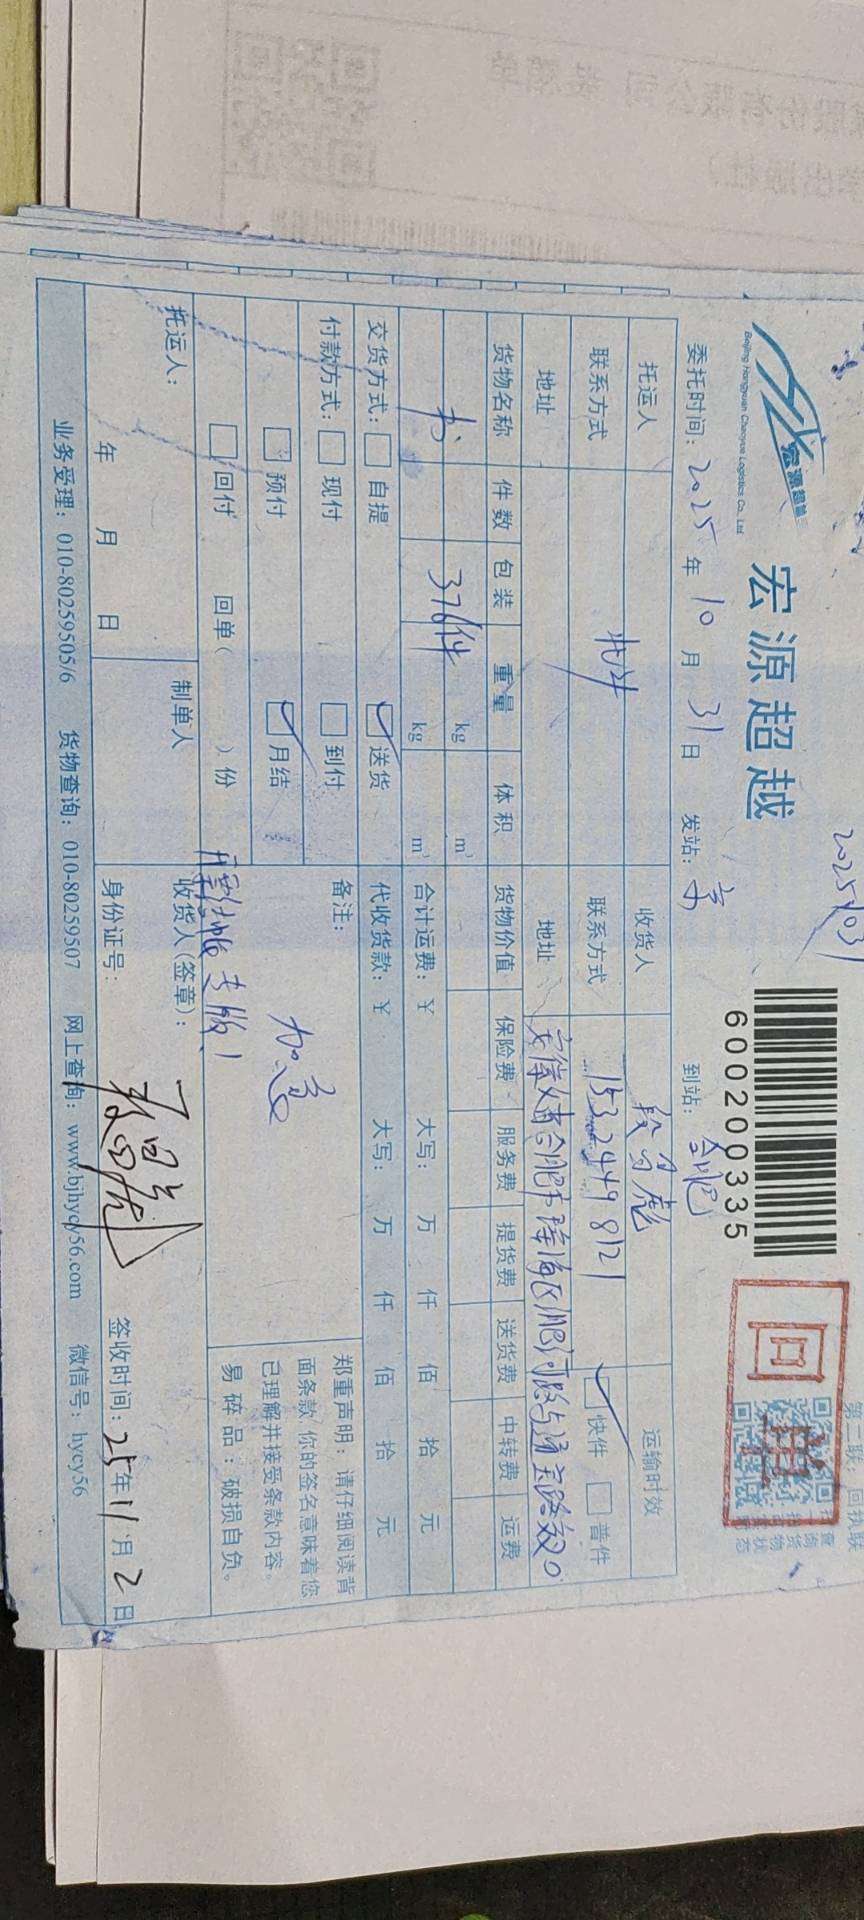 宏源超越
Beijing Hongyuan Chaoyue Logistics Co., Ltd
宏源超越
20251031
600200335
回单
第二联：回执联
委托时间：2025年10月31日 发站：京 到站：合肥
托运人 收货人 段高彪 运输时效
联系方式 联系方式 15324498121 快件 普件
地址 地址
货物名称 件数 包装 重量 体积 货物价值 保险费 服务费 提货费 送货费 中转费 运费
书 376件 kg m³
kg m³ 合计运费：¥ 大写： 万 仟 佰 拾 元
交货方式： 自提 送货 代收货款：¥ 大写： 万 仟 佰 拾 元
付款方式： 现付 到付 备注：
预付 月结 加急
回付 回单（ ）份
郑重声明：请仔细阅读背
面条款，你的签名意味着您
已理解并接受条款内容。
易碎品：破损自负。
托运人： 制单人 收货人（签章）：
年 月 日 身份证号： 签收时间：25年11月2日
业务受理：010-80259505/6 货物查询：010-80259507 网上查询：www.bjhycy56.com 微信号：hycy56